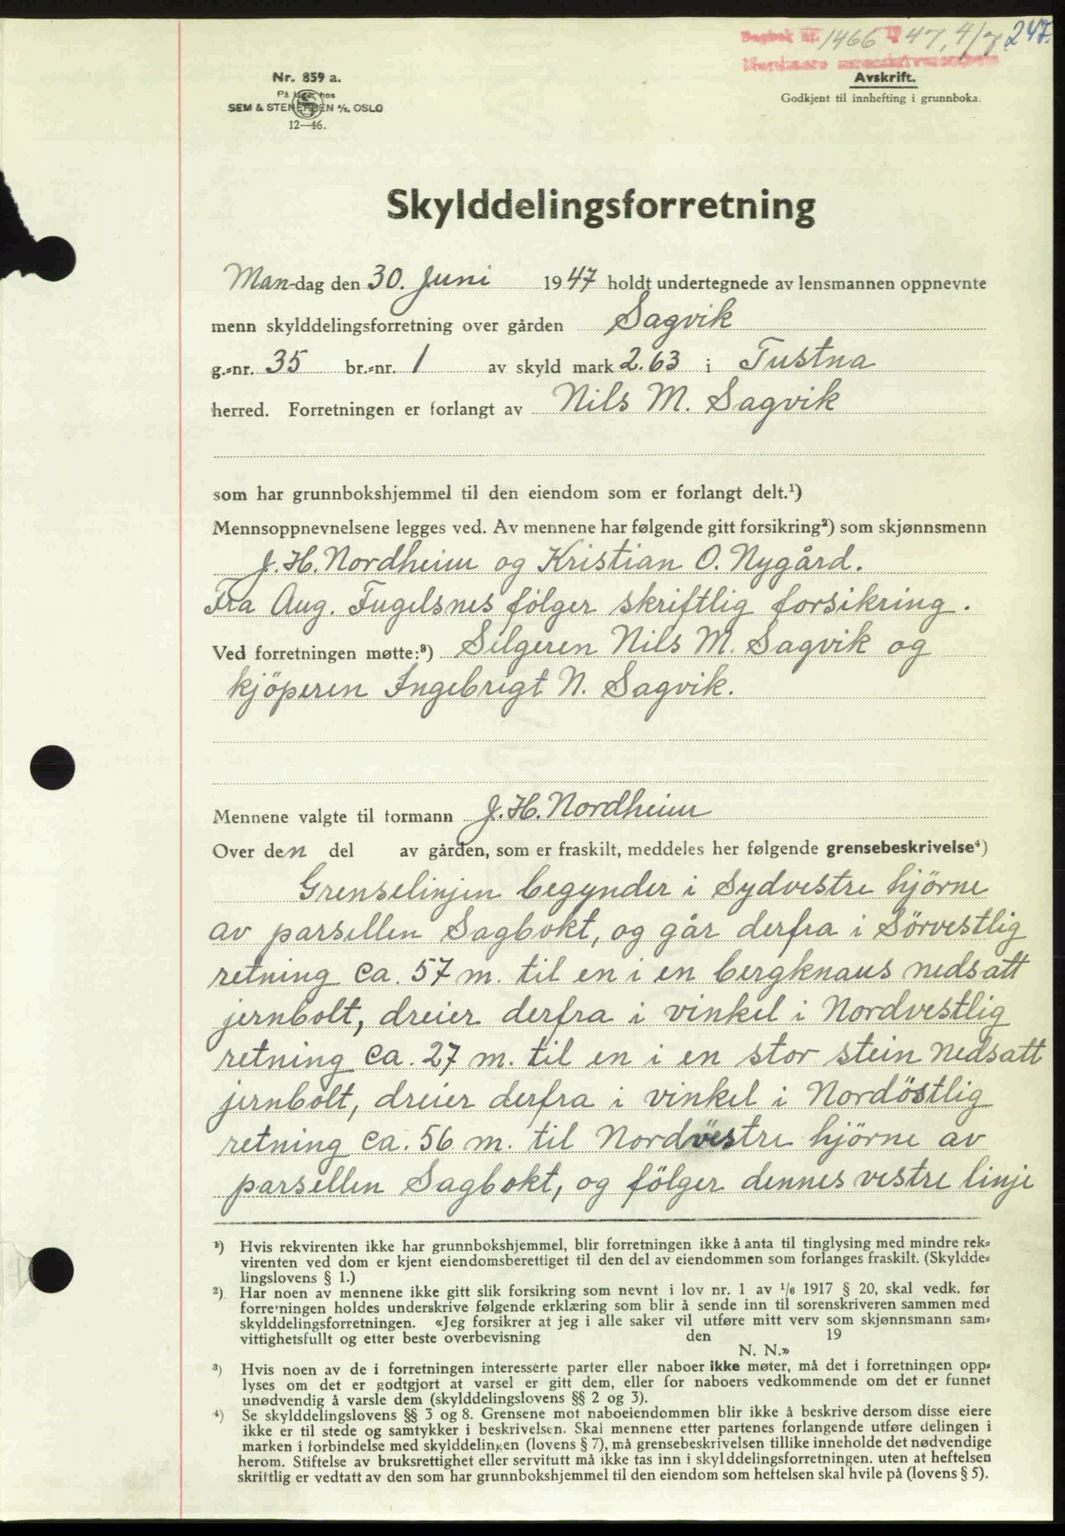 Dagbok nr. 1466 19 47, 4/7 247.
Nordmøre sorenskriverembete
Nr. 859 a.
På lager hos
SEM & STENERSEN A/S, OSLO
12—46.
Avskrift.
Godkjent til innhefting i grunnboka.
Skylddelingsforretning
Mandag den 30. Juni 1947 holdt undertegnede av lensmannen oppnevnte
menn skylddelingsforretning over gården Sagvik
g.-nr. 35 br.-nr. 1 av skyld mark 2.63 i Tustna
herred. Forretningen er forlangt av Nils M. Sagvik
som har grunnbokshjemmel til den eiendom som er forlangt delt.¹)
Mennsoppnevnelsene legges ved. Av mennene har følgende gitt forsikring²) som skjønnsmenn
J. H. Nordheim og Kristian O. Nygård.
Fra Aug. Fugelsnes fölger skriftlig forsikring.
Ved forretningen møtte:³) Selgeren Nils M. Sagvik og
kjöperen Ingebrigt N. Sagvik.
Mennene valgte til formann J. H. Nordheim
Over den del av gården, som er fraskilt, meddeles her følgende grensebeskrivelse⁴)
Grenselinjen begynder i Sydvestre hjörne
av parsellen Sagbokt, og går derfra i Sörvestlig
retning ca. 57 m. til en i en bergknaus nedsatt
jernbolt, dreier derfra i vinkel i Nordvestlig
retning ca. 27 m. til en i en stor stein nedsatt
jernbolt, dreier derfra i vinkel i Nordöstlig
retning ca. 56 m. til Nordvestre hjörne av
parsellen Sagbokt, og fölger dennes vestre linje
¹) Hvis rekvirenten ikke har grunnbokshjemmel, blir forretningen ikke å anta til tinglysing med mindre rek-
virenten ved dom er kjent eiendomsberettiget til den del av eiendommen som forlanges fraskilt. (Skyldde-
lingslovens § 1.)
²) Har noen av mennene ikke gitt slik forsikring som nevnt i lov nr. 1 av 1/6 1917 § 20, skal vedk. før
forretningen holdes underskrive følgende erklæring som blir å sende inn til sorenskriveren sammen med
skylddelingsforretningen. «Jeg forsikrer at jeg i alle saker vil utføre mitt verv som skjønnsmann sam-
vittighetsfullt og etter beste overbevisning den 19
N. N.»
³) Hvis noen av de i forretningen interesserte parter eller naboer ikke møter, må det i forretningen opp-
lyses om det er godtgjort at varsel er gitt dem, eller for naboers vedkommende om det er funnet
unødvendig å varsle dem (skylddelingslovens §§ 2 og 3).
⁴) Se skylddelingslovens §§ 3 og 8. Grensene mot naboeiendommen blir ikke å beskrive dersom disse eiere
ikke er til stede og samtykker i beskrivelsen. Skal mennene etter partenes forlangende utføre delingen i
marken i forbindelse med skylddelingen (lovens § 7), må grensebeskrivelsen tillike inneholde det nødvendige
herom. Stiftelse av bruksrettighet eller servitutt må ikke tas inn i skylddelingsforretningen, uten at heftelsen
skriftlig er vedtatt av den som har grunnbokshjemmel til den eiendom som heftelsen skal hvile på (lovens § 5).